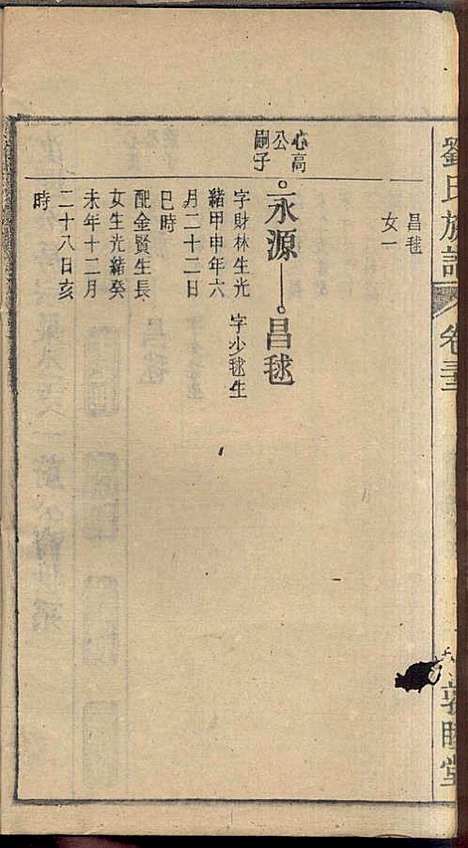 劉氏族譜
卷三
敦睦堂
昌毬
女一
心高
公
嗣子
永源
昌毬
字少毬生
字財林生光
緒甲申年六
月二十二日
巳時
配金賢生長
女生光緒癸
未年十二月
二十八日亥
時